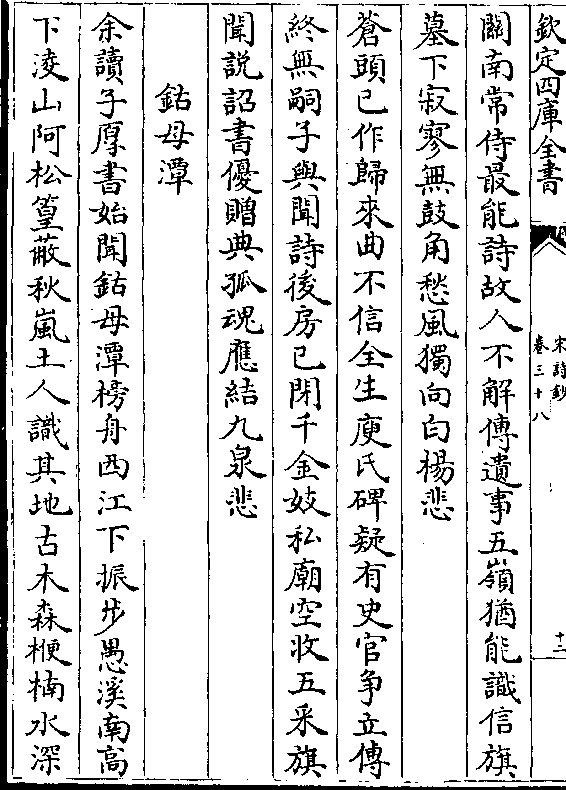 欽定四庫全書
宋詩鈔
卷三十八
十二
關南常侍最能詩故人不解傳遺事五嶺猶能識信旗
墓下寂寥無鼓角愁風獨向白楊悲
蒼頭已作歸來曲不信全生庾氏碑疑有史官争立傳
終無嗣子與聞詩後房已閉千金妓私廟空收五采旗
聞説詔書優贈典孤魂應結九泉悲
鈷母潭
余讀子厚書始聞鈷母潭榜舟西江下振步愚溪南高
下淩山阿松篁蔽秋嵐土人識其地古木森楩楠水深